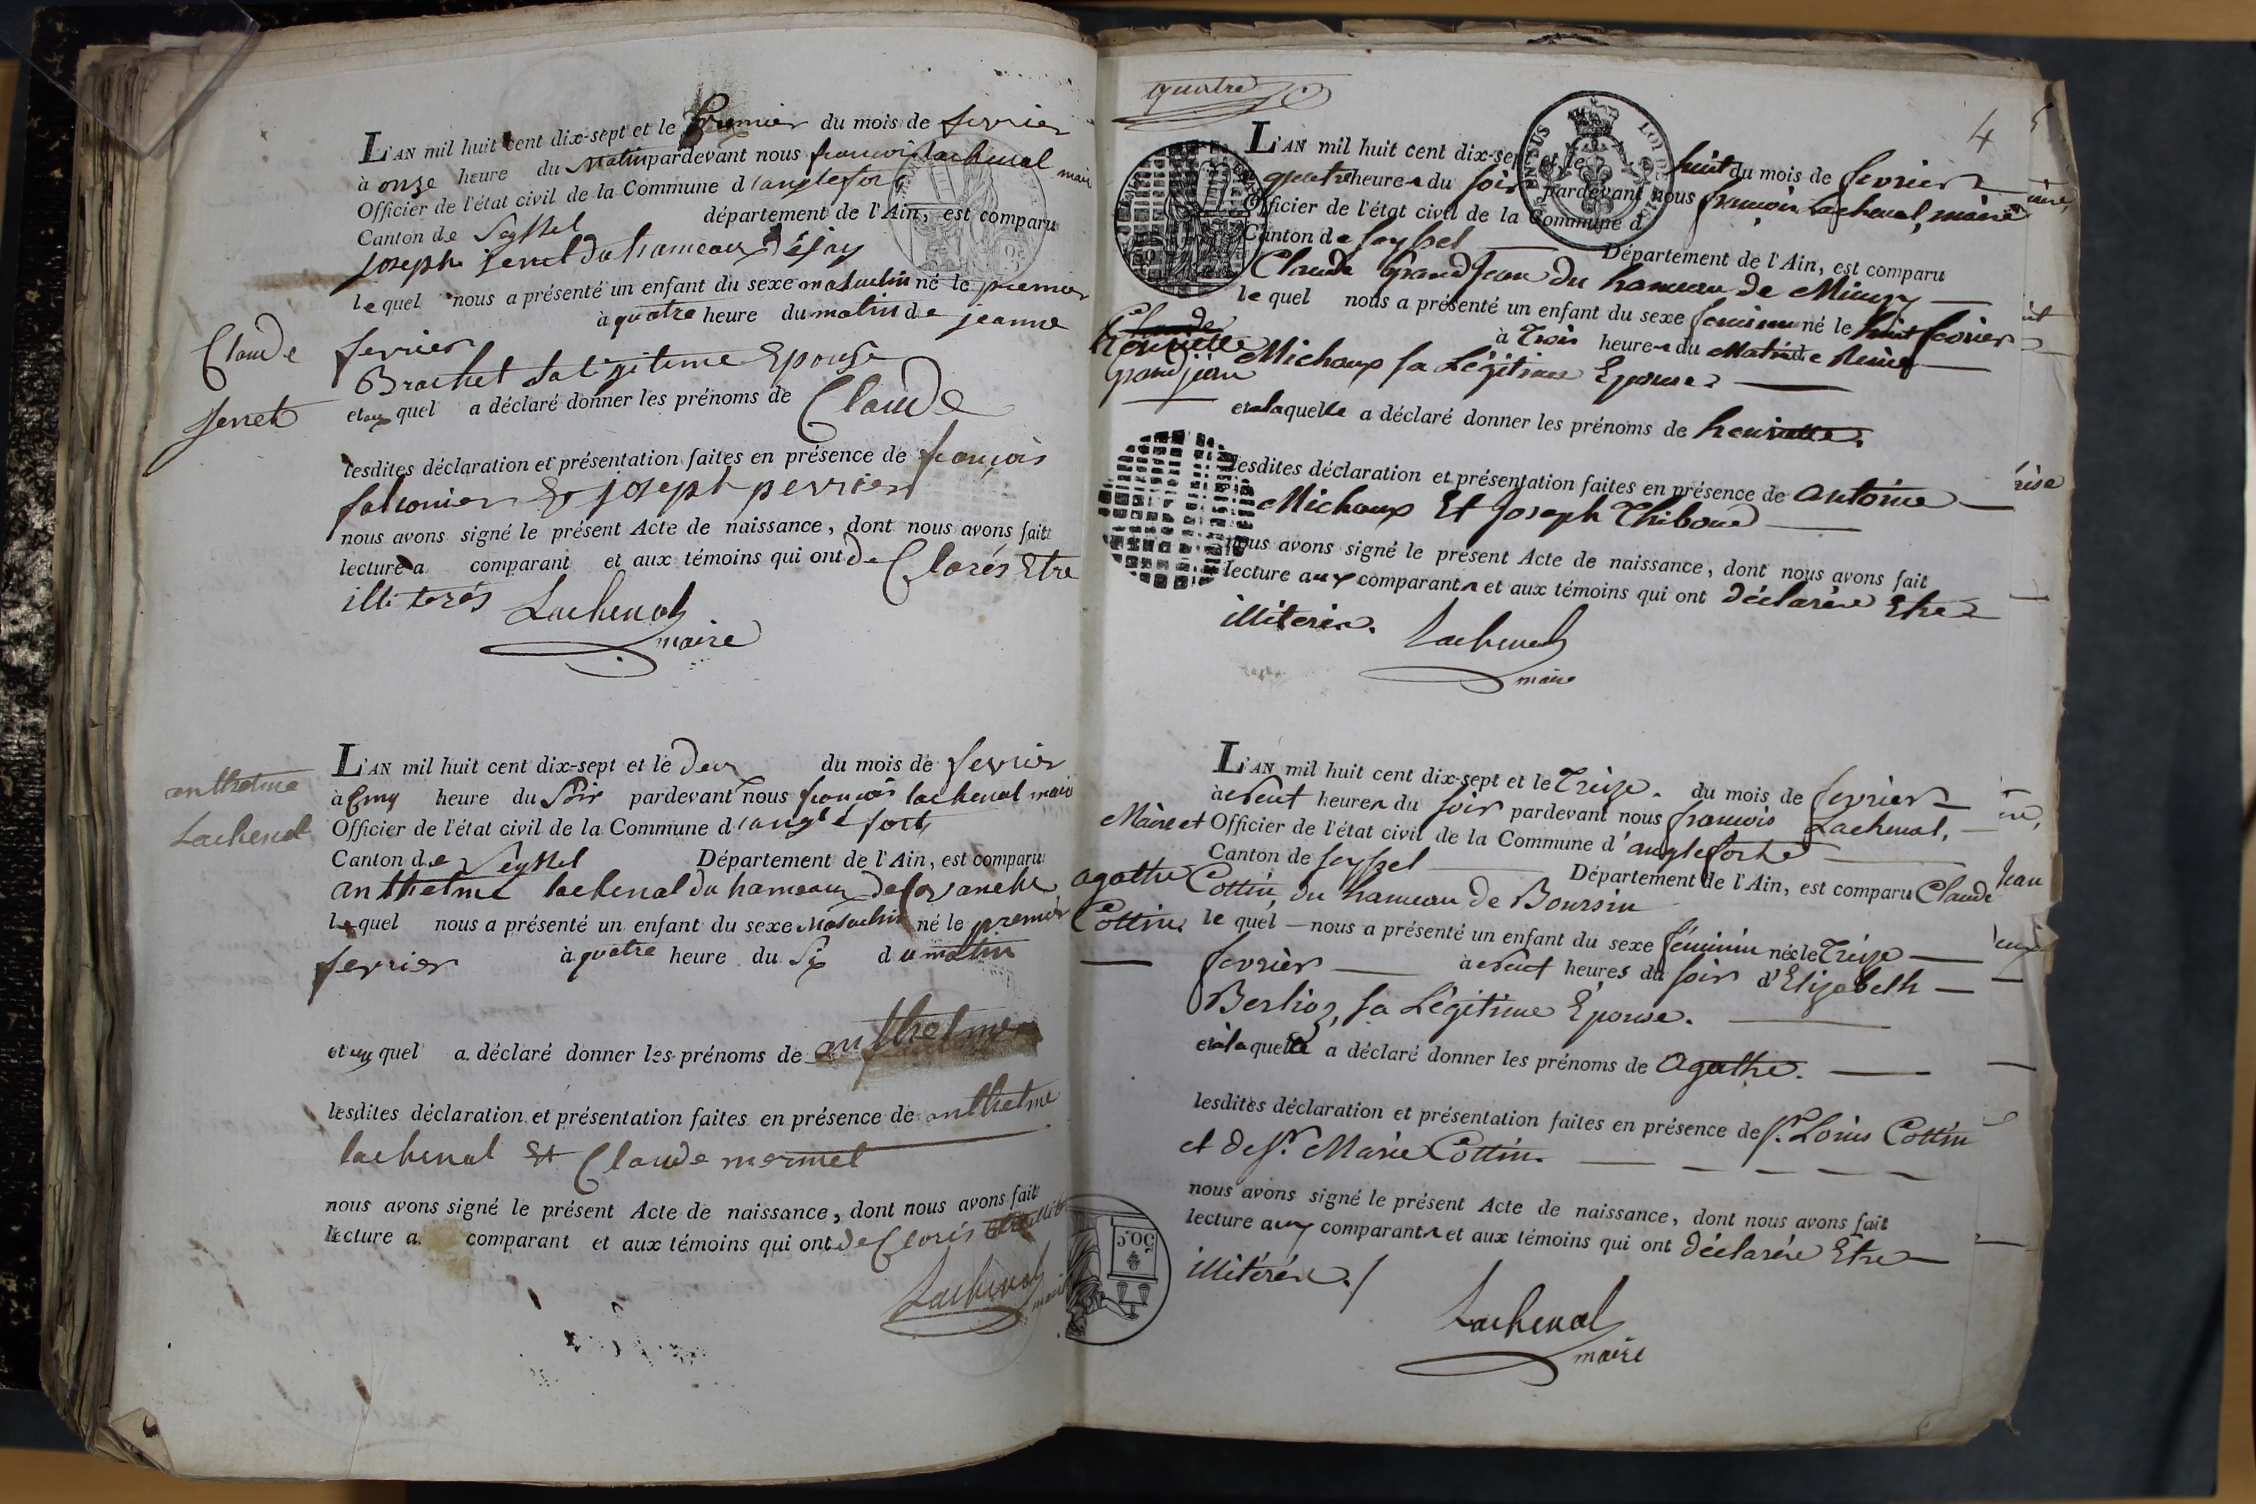 L'AN mil huit cent dix-sept et le premier du mois de fevrier
à onze heure du matin pardevant nous françois lachenal maire
Officier de l'état civil de la Commune d'anglefort
Canton de Seyssel département de l'Ain, est comparu
joseph jenet du hameaux d'
le quel nous a présenté un enfant du sexe masculin né le premier
à quatre heure du matin de jeanne
Claude
fevrier
Brachet sa legitime Epouse
jenet
et au quel a déclaré donner les prénoms de Claude
lesdites déclaration et présentation faites en présence de françois
falconier & joseph perrier
nous avons signé le présent Acte de naissance, dont nous avons fait
lecture a comparant et aux témoins qui ont declarés Etre
illiterés Lachenal
maire
L'AN mil huit cent dix-sept et le deux du mois de fevrier
anthelme
à cinq heure du Soir pardevant nous françois lachenal maire
Lachenal
Officier de l'état civil de la Commune d'anglefort
Canton de Seyssel Département de l'Ain, est comparu
anthelme lachenal du hameaux de
le quel nous a présenté un enfant du sexe masculin né le premier
fevrier à quatre heure du du matin
et au quel a déclaré donner les prénoms de anthelme
lesdites déclaration et présentation faites en présence de anthelme
lachenal Et Claude mermet
nous avons signé le présent Acte de naissance, dont nous avons fait
lecture a comparant et aux témoins qui ont declarés
Lachenal
maire
quatre
4
L'AN mil huit cent dix-sept et le huit du mois de fevrier
quatre heures du soir pardevant nous françois Lachenal, maire
Officier de l'état civil de la Commune d
Canton de Seyssel Département de l'Ain, est comparu
Claude Grandjean du hameau de
le quel nous a présenté un enfant du sexe feminin né le huit fevrier
Claude
henriette
Grandjean
à Trois heures du Matin de
Michaux sa Légitime Epouse
et à laquelle a déclaré donner les prénoms de henriette.
lesdites déclaration et présentation faites en présence de antoine
Michaux Et Joseph Thiboud
nous avons signé le présent Acte de naissance, dont nous avons fait
lecture aux comparants et aux témoins qui ont déclarés Etre
illiterés.
Lachenal
maire
L'AN mil huit cent dix-sept et le Treize du mois de fevrier
à heures du soir pardevant nous françois Lachenal,
Maire et Officier de l'état civil de la Commune d'anglefort
Canton de Seyssel Département de l'Ain, est comparu Claude
agathe
Cottin
Cottin, du hameau de Boursin
le quel nous a présenté un enfant du sexe féminin née le Treize
fevrier à heures du soir d'Elizabeth
Berlioz, sa Légitime Epouse.
et à laquelle a déclaré donner les prénoms de agathe.
lesdites déclaration et présentation faites en présence de Sr. Louis Cottin
et de Sr. Marie Cottin.
nous avons signé le présent Acte de naissance, dont nous avons fait
lecture aux comparants et aux témoins qui ont déclarés Etre
50.C
illitérés./
Lachenal
maire